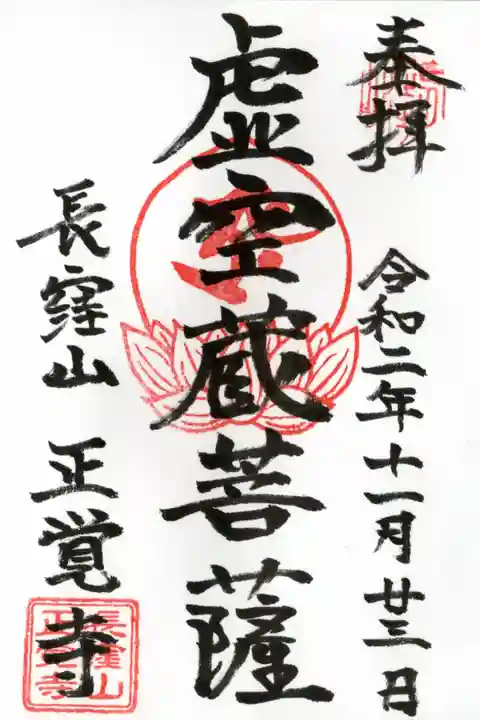 奉拝
令和二年十一月廿三日
虚空蔵菩薩
長窪山 正覚寺
長窪山正覚寺